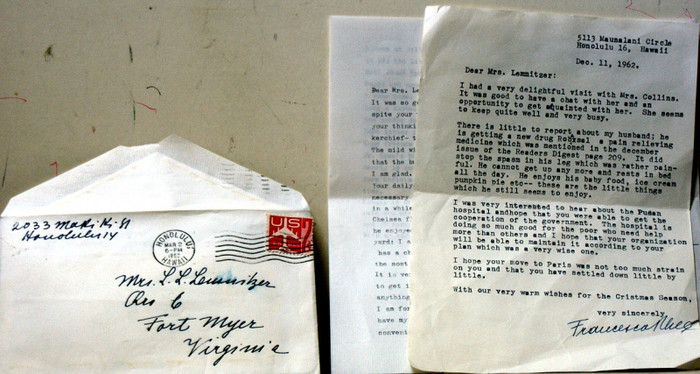 2033 Makiki St
Honolulu 14
HONOLULU
MAR 2
6-PM
1962
HAWAII
US
Mrs. L. L. Lemnitzer
Qrs 6
Fort Myer
Virginia
Dear Mrs. Lem
It was so g
spite your
your thinki
kerchief- t
The mild w
that the
I am glad.
Your daily
necessary
in a while
Chelsea f
he enjoye
yard; I a
has a ch
the most
It is ver
to get i
anything
I am for
have my
conveni
5113 Maunalani Circle
Honolulu 16, Hawaii
Dec. 11, 1962.
Dear Mrs. Lemnitzer:
I had a very delightful visit with Mrs. Collins.
It was good to have a chat with her and an
opportunity to get aquainted with her. She seems
to keep quite well and very busy.
There is little to report about my husband; he
is getting a new drug a pain relieving
medicine which was mentioned in the december
issue of the Readers Digest page 209. It did
stop the spasm in his leg which was rather pain-
ful. He cannot get up any more and rests in bed
all the day. He enjoys his baby food, ice cream
pumpkin pie etc-- these are the little things
which he still seems to enjoy.
I was very interested to hear about the Pusan
hospital andhope that you were able to get the
cooperation of the government. The hospital is
doing so much good for the poor who need help
more than others and I hope that your organization
will be able to maintain it according to your
plan which was a very wise one.
I hope your move to Paris was not too much strain
on you and that you have settled down little by
little.
With our very warm wishes for the Cristmas Season.
very sincerely
Francesca Rhee